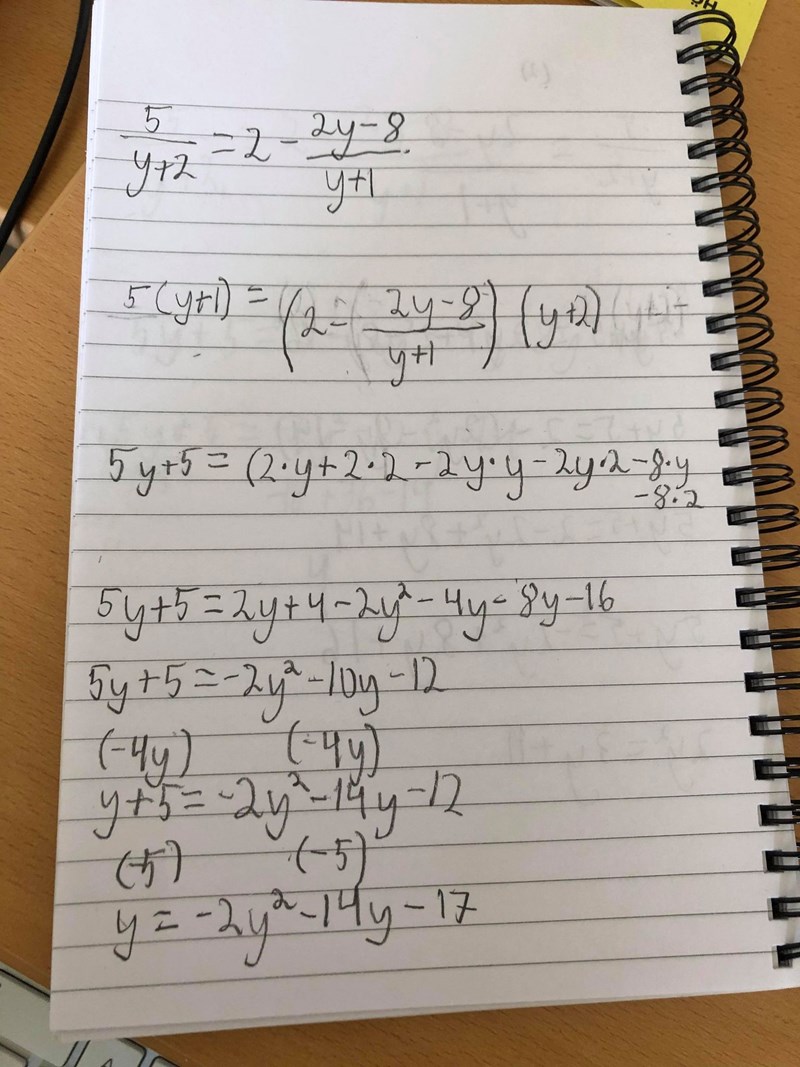 5/(y+2) = 2 - (2y-8)/(y+1)
5(y+1) = (2 - (2y-8)/(y+1)) (y+2)
5y+5 = (2·y+2·2-2y·y-2y·2-8·y
-8·2
5y+5=2y+4-2y²-4y-8y-16
5y+5=-2y²-10y-12
(-4y) (-4y)
y+5=-2y²-14y-12
(-5) (-5)
y = -2y²-14y-17